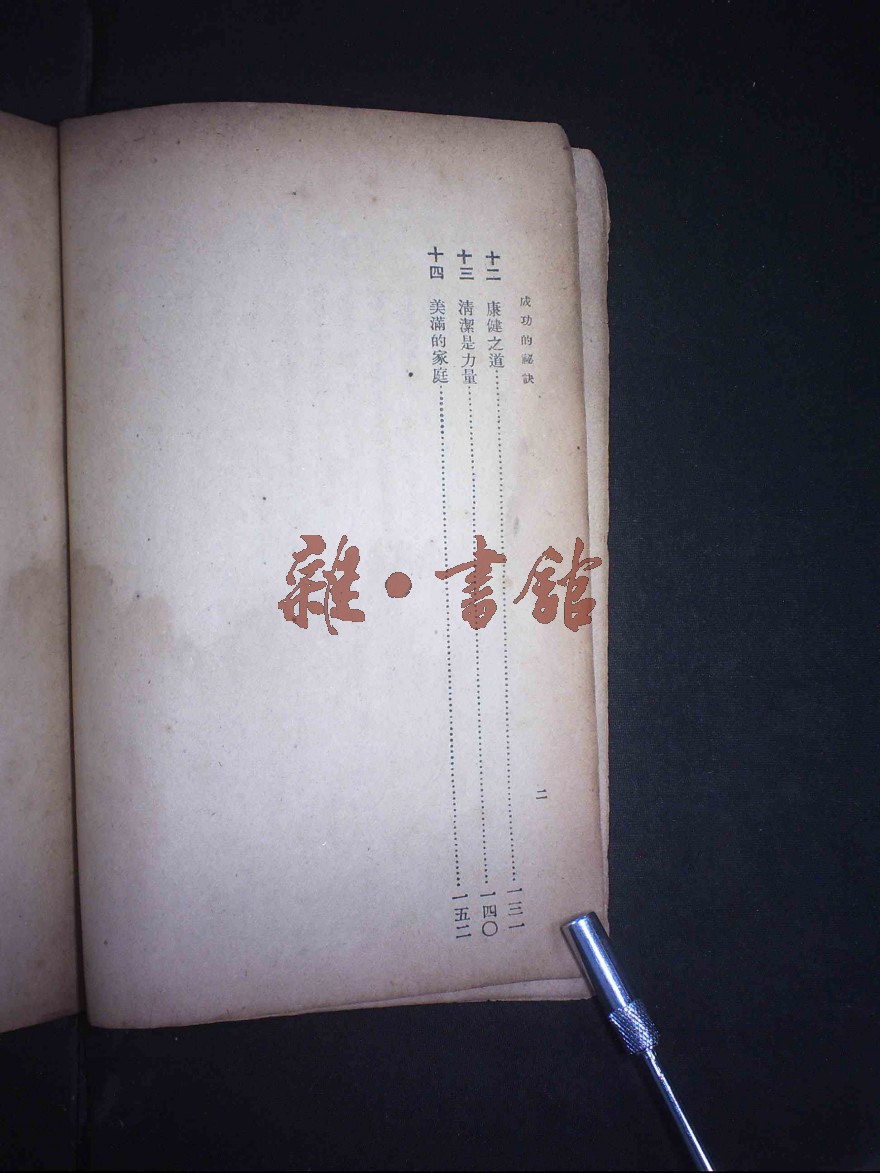 成功的祕訣
二
十二 康健之道……一三一
十三 清潔是力量……一四〇
十四 美滿的家庭……一五二
雜·書館